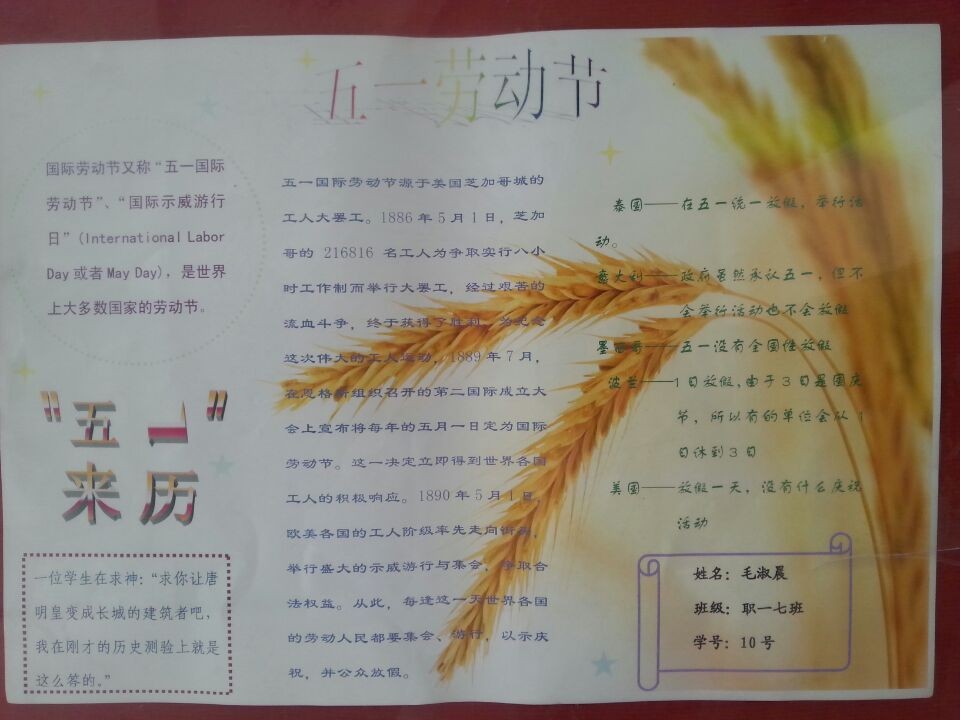 五一劳动节
国际劳动节又称“五一国际
劳动节”、“国际示威游行
日”(International Labor
Day 或者 May Day)，是世界
上大多数国家的劳动节。
“五一”
来历
一位学生在求神：“求你让唐
明皇变成长城的建筑者吧，
我在刚才的历史测验上就是
这么答的。”
五一国际劳动节源于美国芝加哥城的
工人大罢工。1886 年 5 月 1 日，芝加
哥的 216816 名工人为争取实行八小
时工作制而举行大罢工，经过艰苦的
流血斗争，终于获得了胜利。为纪念
这次伟大的工人运动，1889 年 7 月，
在恩格斯组织召开的第二国际成立大
会上宣布将每年的五月一日定为国际
劳动节。这一决定立即得到世界各国
工人的积极响应。1890 年 5 月 1 日，
欧美各国的工人阶级率先走向街头，
举行盛大的示威游行与集会，争取合
法权益。从此，每逢这一天世界各国
的劳动人民都要集会、游行，以示庆
祝，并公众放假。
泰国——在五一统一放假，举行活
动。
意大利——政府虽然承认五一，但不
会举行活动也不会放假
墨西哥——五一没有全国性放假
波兰——1 日放假，由于 3 日是国庆
节，所以有的单位会从 1
日休到 3 日
美国——放假一天，没有什么庆祝
活动
姓名：毛淑晨
班级：职一七班
学号：10 号